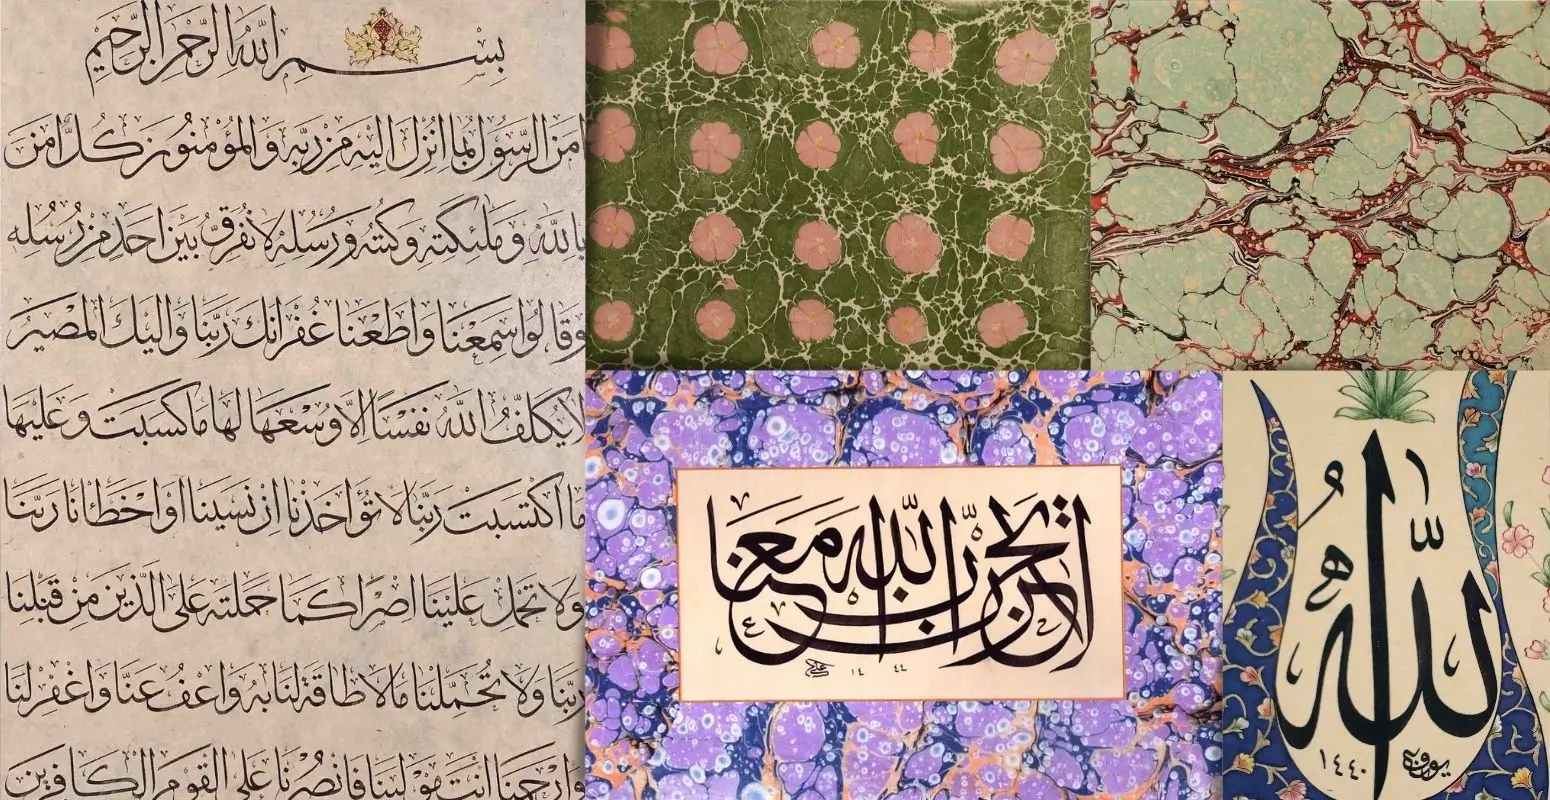 بسم الله الرحمن الرحيم
امن الرسول بما انزل اليه من ربه والمؤمنون كل امن
بالله وملئكته وكتبه ورسله لا نفرق بين احد من رسله
وقالوا سمعنا واطعنا غفرانك ربنا واليك المصير
لا يكلف الله نفسا الا وسعها لها ما كسبت وعليها
ما اكتسبت ربنا لا تؤاخذنا ان نسينا او اخطانا ربنا
ولا تحمل علينا اصرا كما حملته على الذين من قبلنا
ربنا ولا تحملنا ما لا طاقة لنا به واعف عنا واغفر لنا
وارحمنا انت مولينا فانصرنا على القوم الكافرين
لا تحزن ان الله معنا
١٤ ٤٤
الله
١٤٤٠